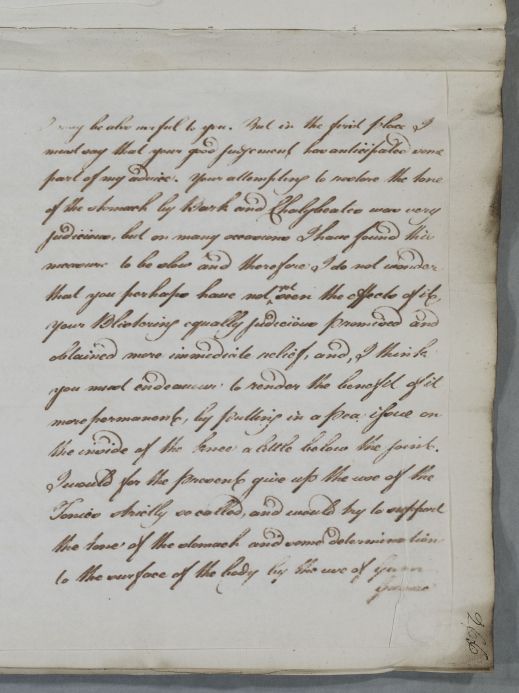 I may be also useful to you. But in the first place I
must say that your good judgement, has anticipated some
part of my advice. Your attempting to restore the tone
of the stomach by Bark and Chalybeates was very
judicious, but on many occasions I have found this
measure to be slow and therefore I do not wonder
that you perhaps have not yet seen the effects of it,
your Blistering equally judicious promised and
obtained more immediate relief, and, I think
you must endeavour to render the benefit of it
more permanent, by putting in a pea issue on
the inside of the knee a little below the joint.
I would for the present give up the use of the
Tonics strictly so called and would try to support
the tone of the stomach and some determination
to the surface of the body by the use of gum
Guaiac
266